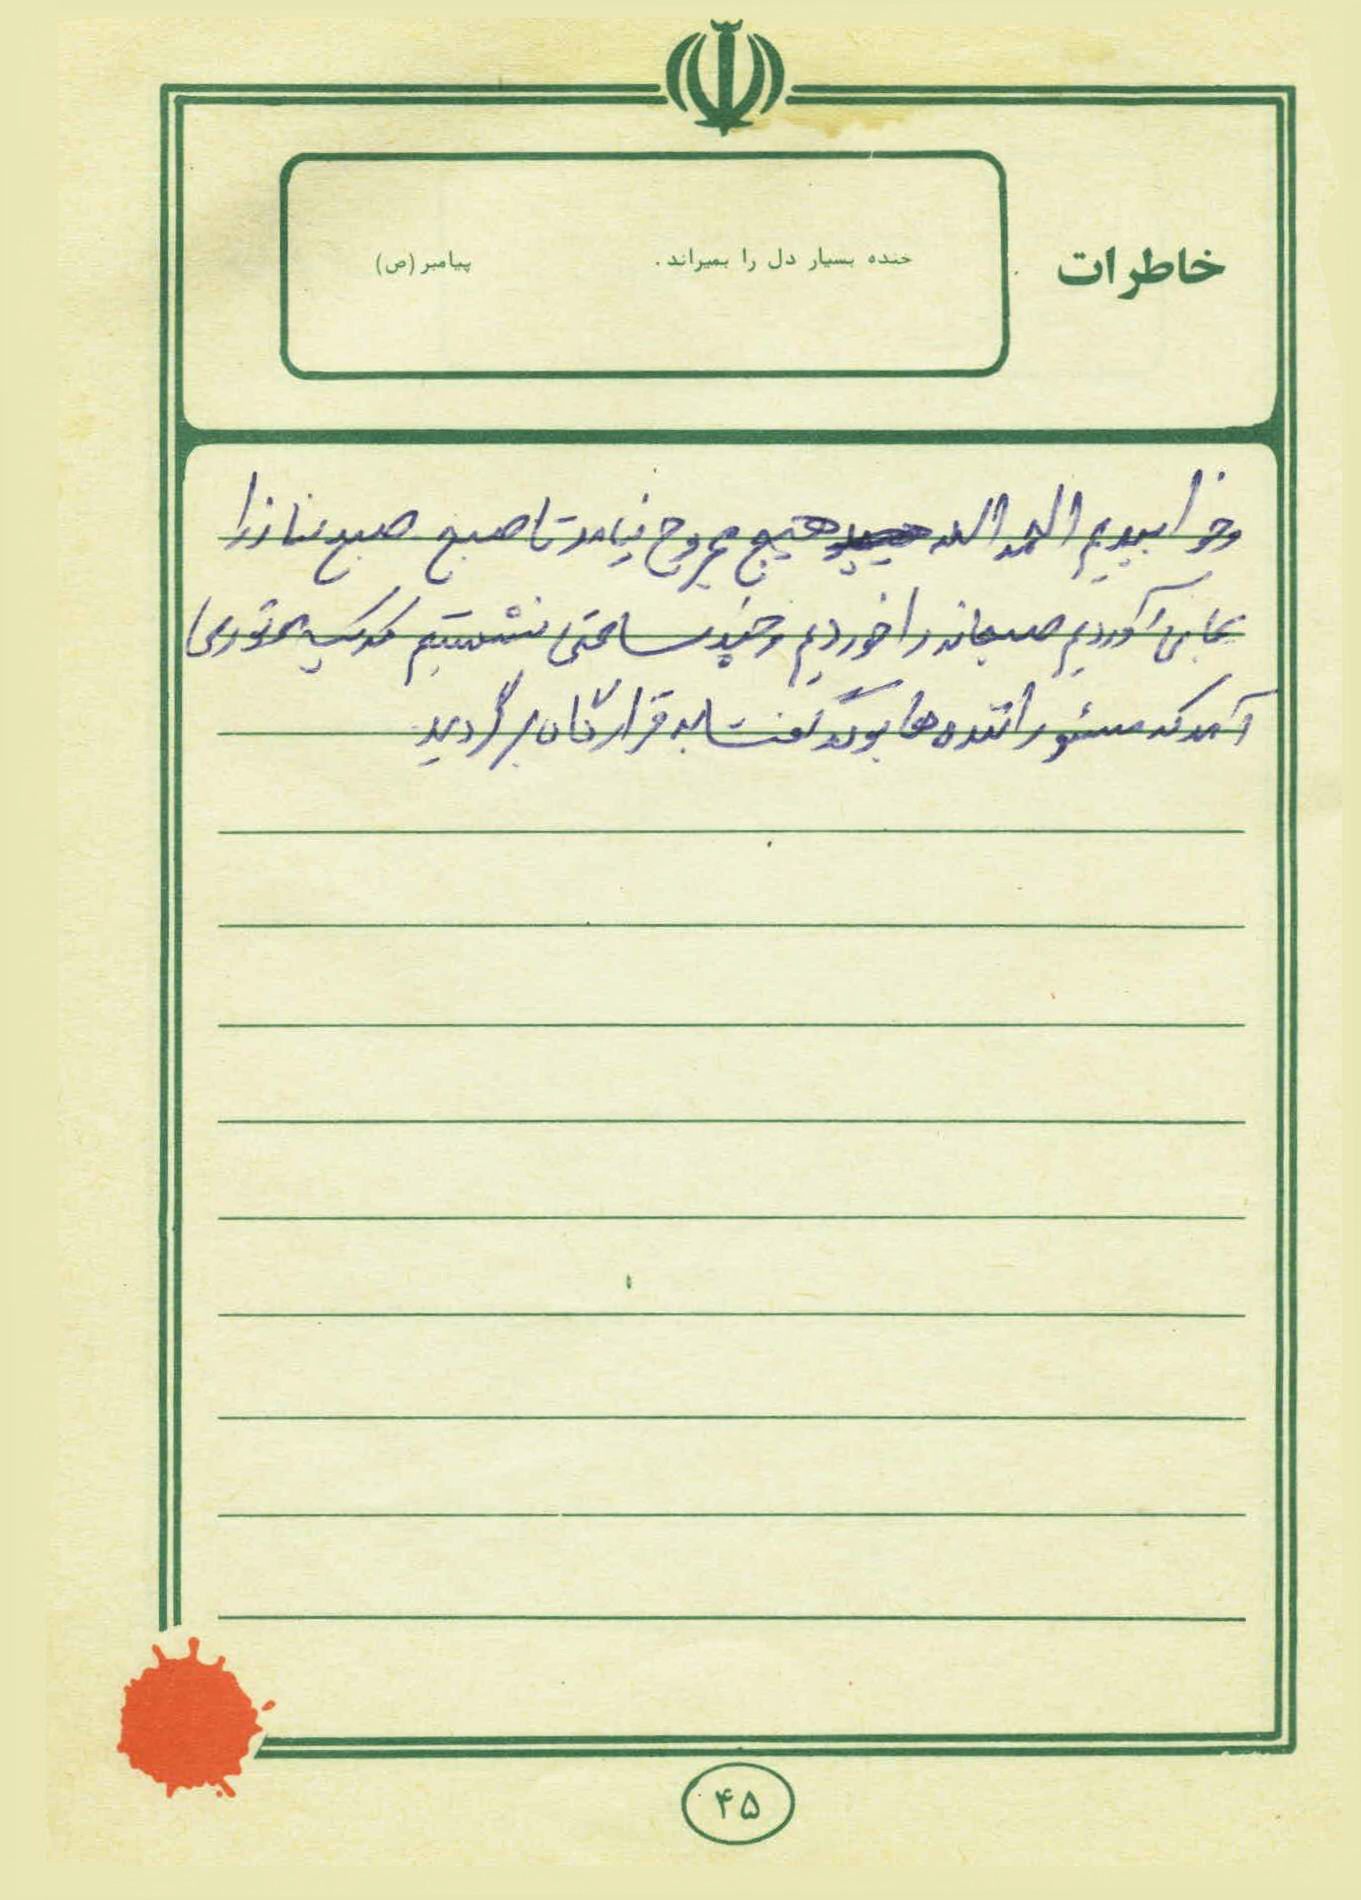 خاطرات
خنده بسیار دل را بمیراند. پیامبر (ص)
و خوابیدیم الحمد الله هیچ مجروح نیامد تا صبح صبح نماز را
بجای آوردیم صبحانه را خوردیم و چند ساعتی نشستیم که یک
آمد که مسئول راننده ها بود گفت به قرارگاه برگردید
۴۵